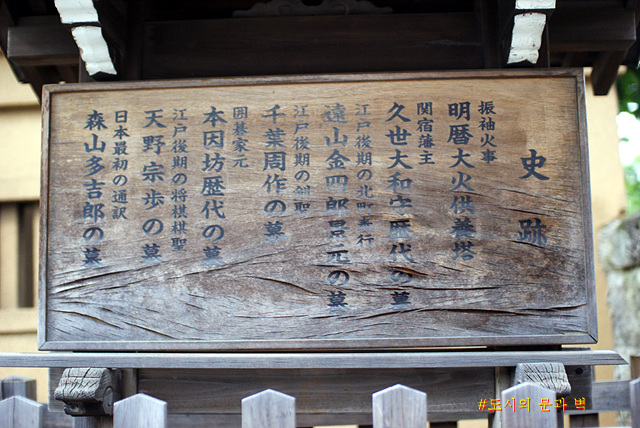 史跡
振袖火事
明暦大火供養塔
関宿藩主
久世大和守歴代の墓
江戸後期の北町奉行
遠山金四郎景元の墓
江戸後期の剣聖
千葉周作の墓
囲碁家元
本因坊歴代の墓
江戸後期の将棋棋聖
天野宗歩の墓
日本最初の通訳
森山多吉郎の墓
#도시의 문과 벽